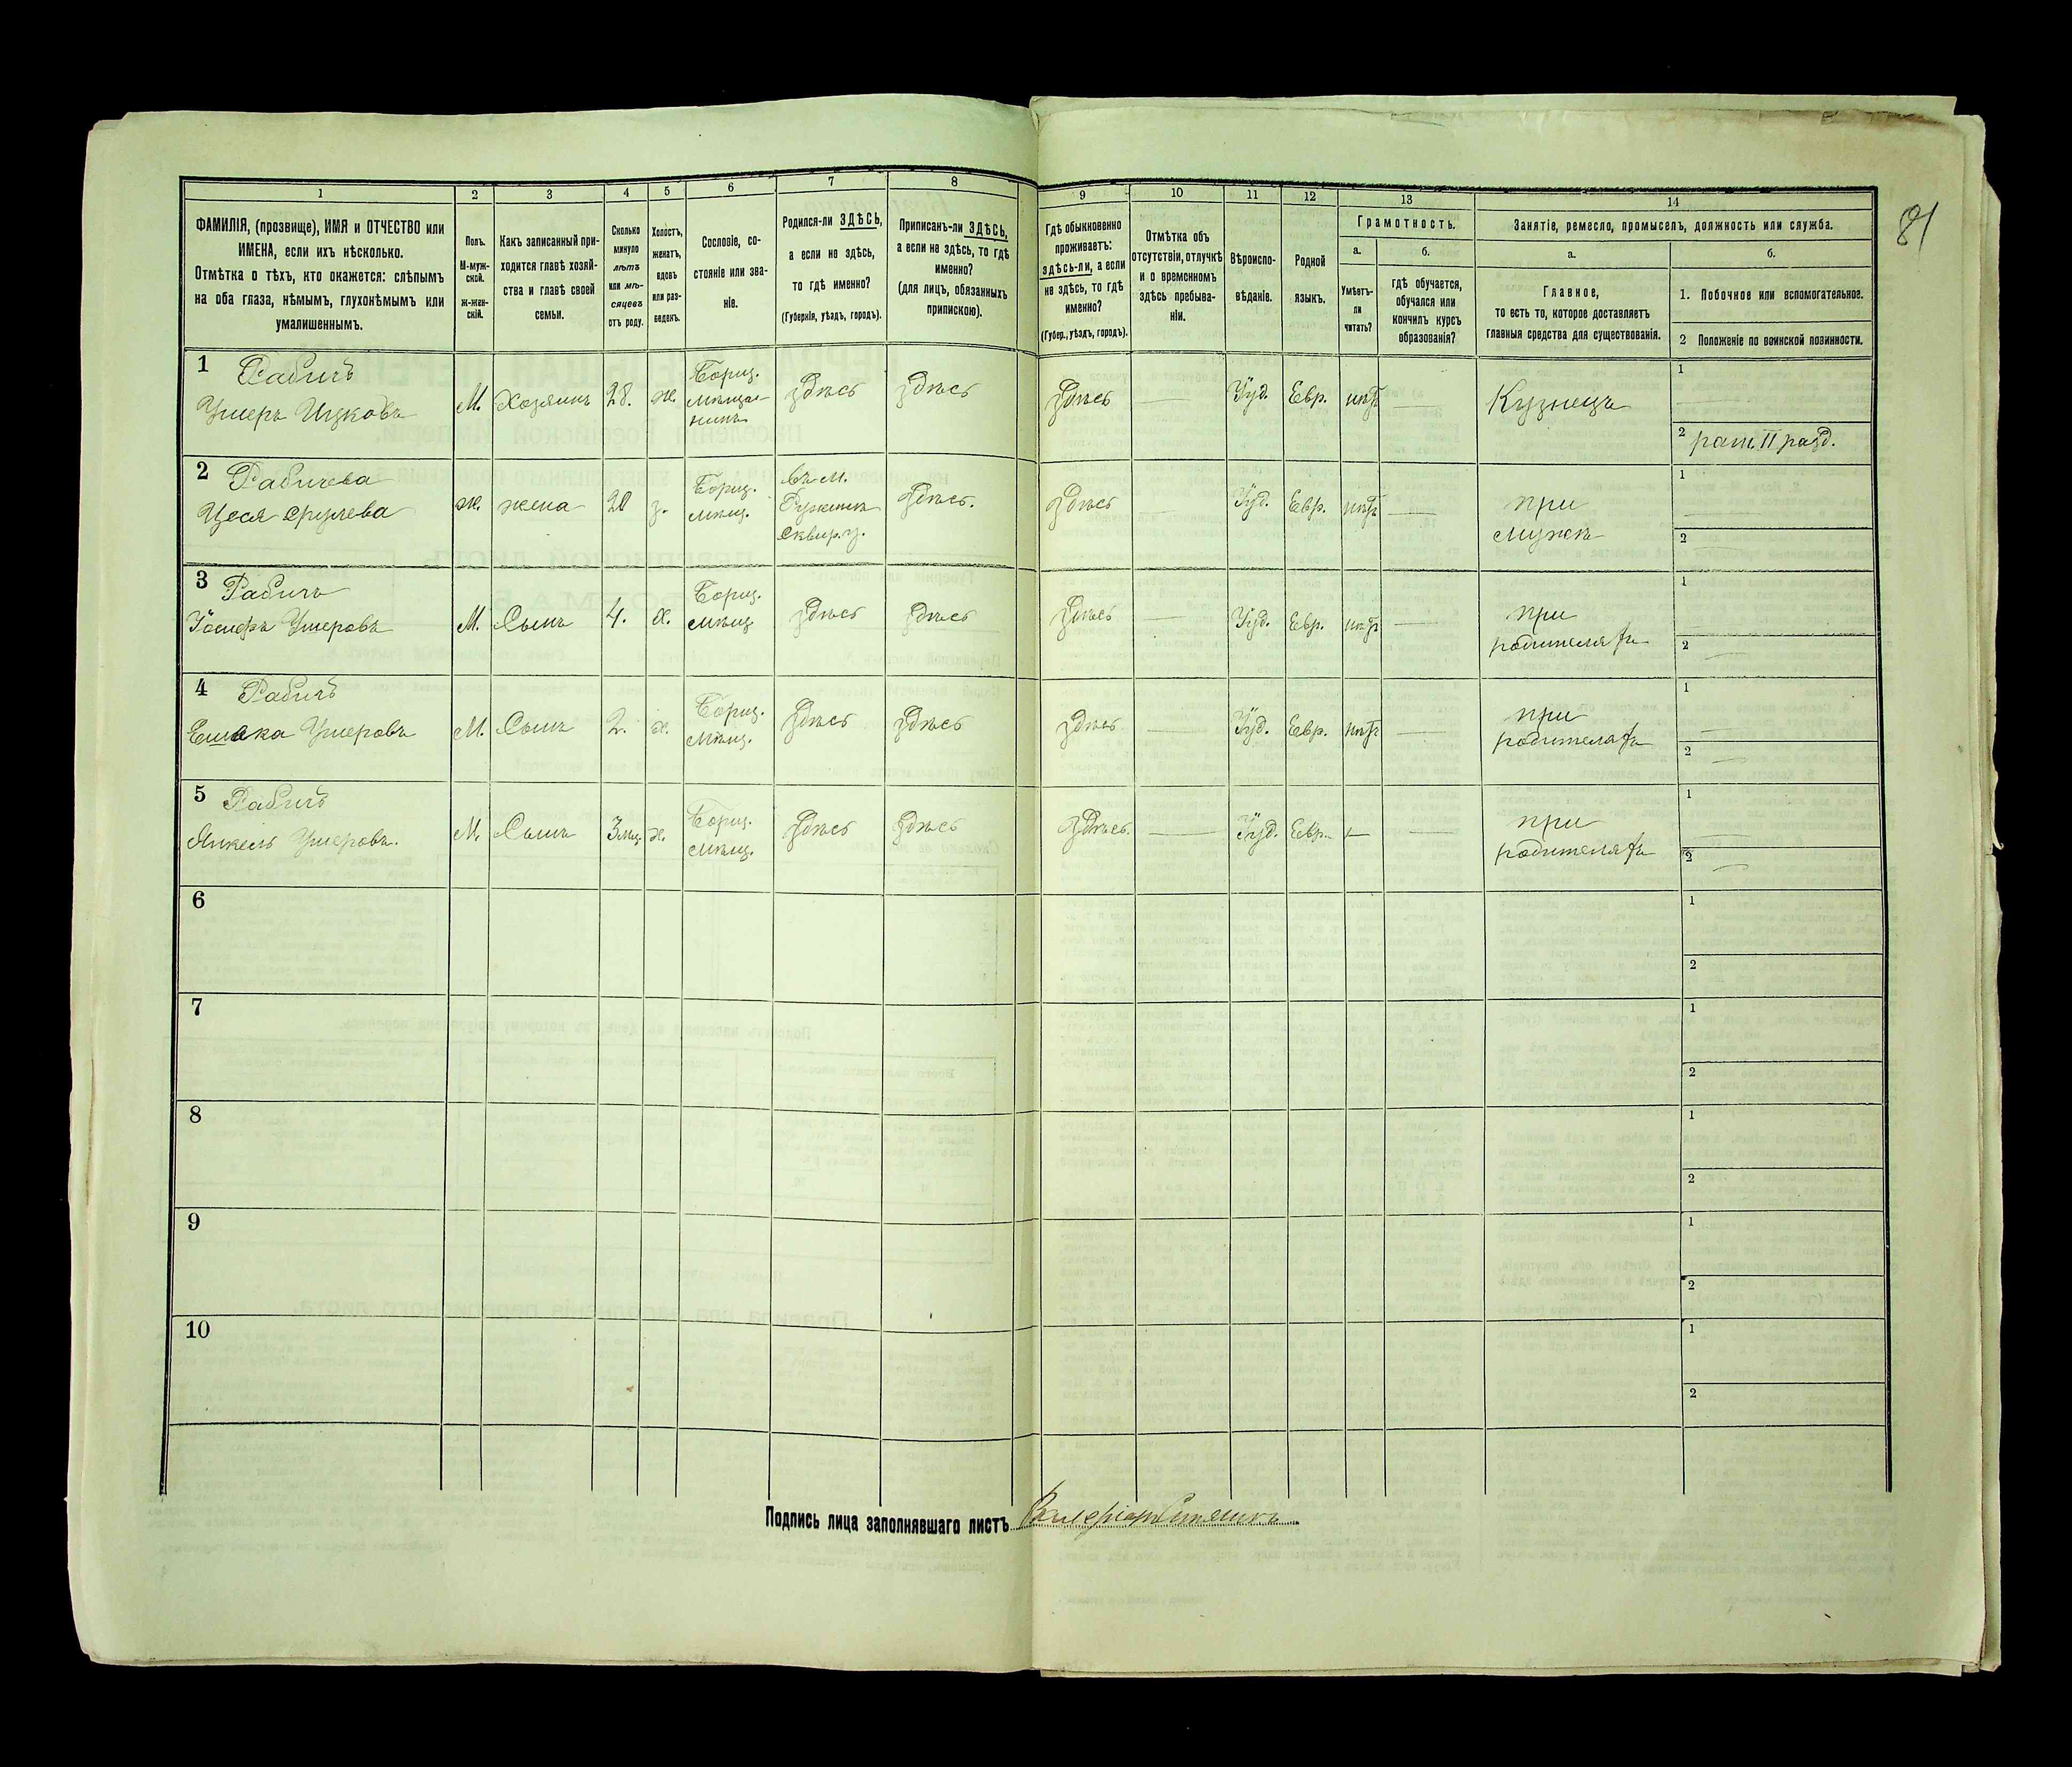 81
1 2 3 4 5 6 7 8 9 10 11 12 13 14
ФАМИЛІЯ, (прозвище), ИМЯ и ОТЧЕСТВО или
ИМЕНА, если ихъ нѣсколько.
Отмѣтка о тѣхъ, кто окажется: слѣпымъ
на оба глаза, нѣмымъ, глухонѣмымъ или
умалишеннымъ.
Полъ.
М-муж-
ской.
ж-жен-
скій.
Какъ записанный при-
ходится главѣ хозяй-
ства и главѣ своей
семьи.
Сколько
минуло
лѣтъ
или мѣ-
сяцевъ
отъ роду.
Холостъ,
женатъ,
вдовъ
или раз-
веденъ.
Сословіе, со-
стояніе или зва-
ніе.
Родился-ли ЗДѢСЬ,
а если не здѣсь,
то гдѣ именно?
(Губернія, уѣздъ, городъ).
Приписанъ-ли ЗДѢСЬ,
а если не здѣсь, то гдѣ
именно?
(для лицъ, обязанныхъ
припискою).
Гдѣ обыкновенно
проживаетъ:
здѣсь-ли, а если
не здѣсь, то гдѣ
именно?
(Губер., уѣздъ, городъ).
Отмѣтка объ
отсутствіи, отлучкѣ
и о временномъ
здѣсь пребыва-
ніи.
Вѣроиспо-
вѣданіе.
Родной
языкъ.
Грамотность.
а.
Умѣетъ-
ли
читать?
б.
гдѣ обучается,
обучался или
кончилъ курсъ
образованія?
Занятіе, ремесло, промыселъ, должность или служба.
а.
Главное,
то есть то, которое доставляетъ
главныя средства для существованія.
б.
1. Побочное или вспомогательное.
2 Положеніе по воинской повинности.
1 Рабичъ
Ушеръ Ицковъ
М. Хозяинъ 28. ж.
Бориц.
мѣща-
нинъ
здѣсь здѣсь здѣсь — Іуд. Евр. нѣтъ — Кузнецъ
1
2 рат. II разд.
2 Рабичева
Цеся Срулева
ж. жена 20 з.
Бориц.
мѣщ.
въ м.
Ружинъ
Сквир. у.
здѣсь. здѣсь — Іуд. Евр. нѣтъ —
при
мужѣ
1
2
3 Рабичъ
Іосифъ Ушеровъ
М. Сынъ 4. х.
Бориц.
мѣщ
здѣсь здѣсь здѣсь — Іуд. Евр. нѣтъ —
при
родителяхъ
1
2
4 Рабичъ
Ушеровъ
М. Сынъ 2. х.
Бориц.
мѣщ.
здѣсь здѣсь здѣсь — Іуд. Евр. нѣтъ —
при
родителяхъ
1
2
5 Рабичъ
Янкель Ушеровъ.
М. Сынъ 3 мѣц. х.
Бориц.
мѣщ.
здѣсь здѣсь здѣсь. — Іуд. Евр. — —
при
родителяхъ
1
2
6
1
2
7
1
2
8
1
2
9
1
2
10
1
2
Подпись лица заполнявшаго листъ